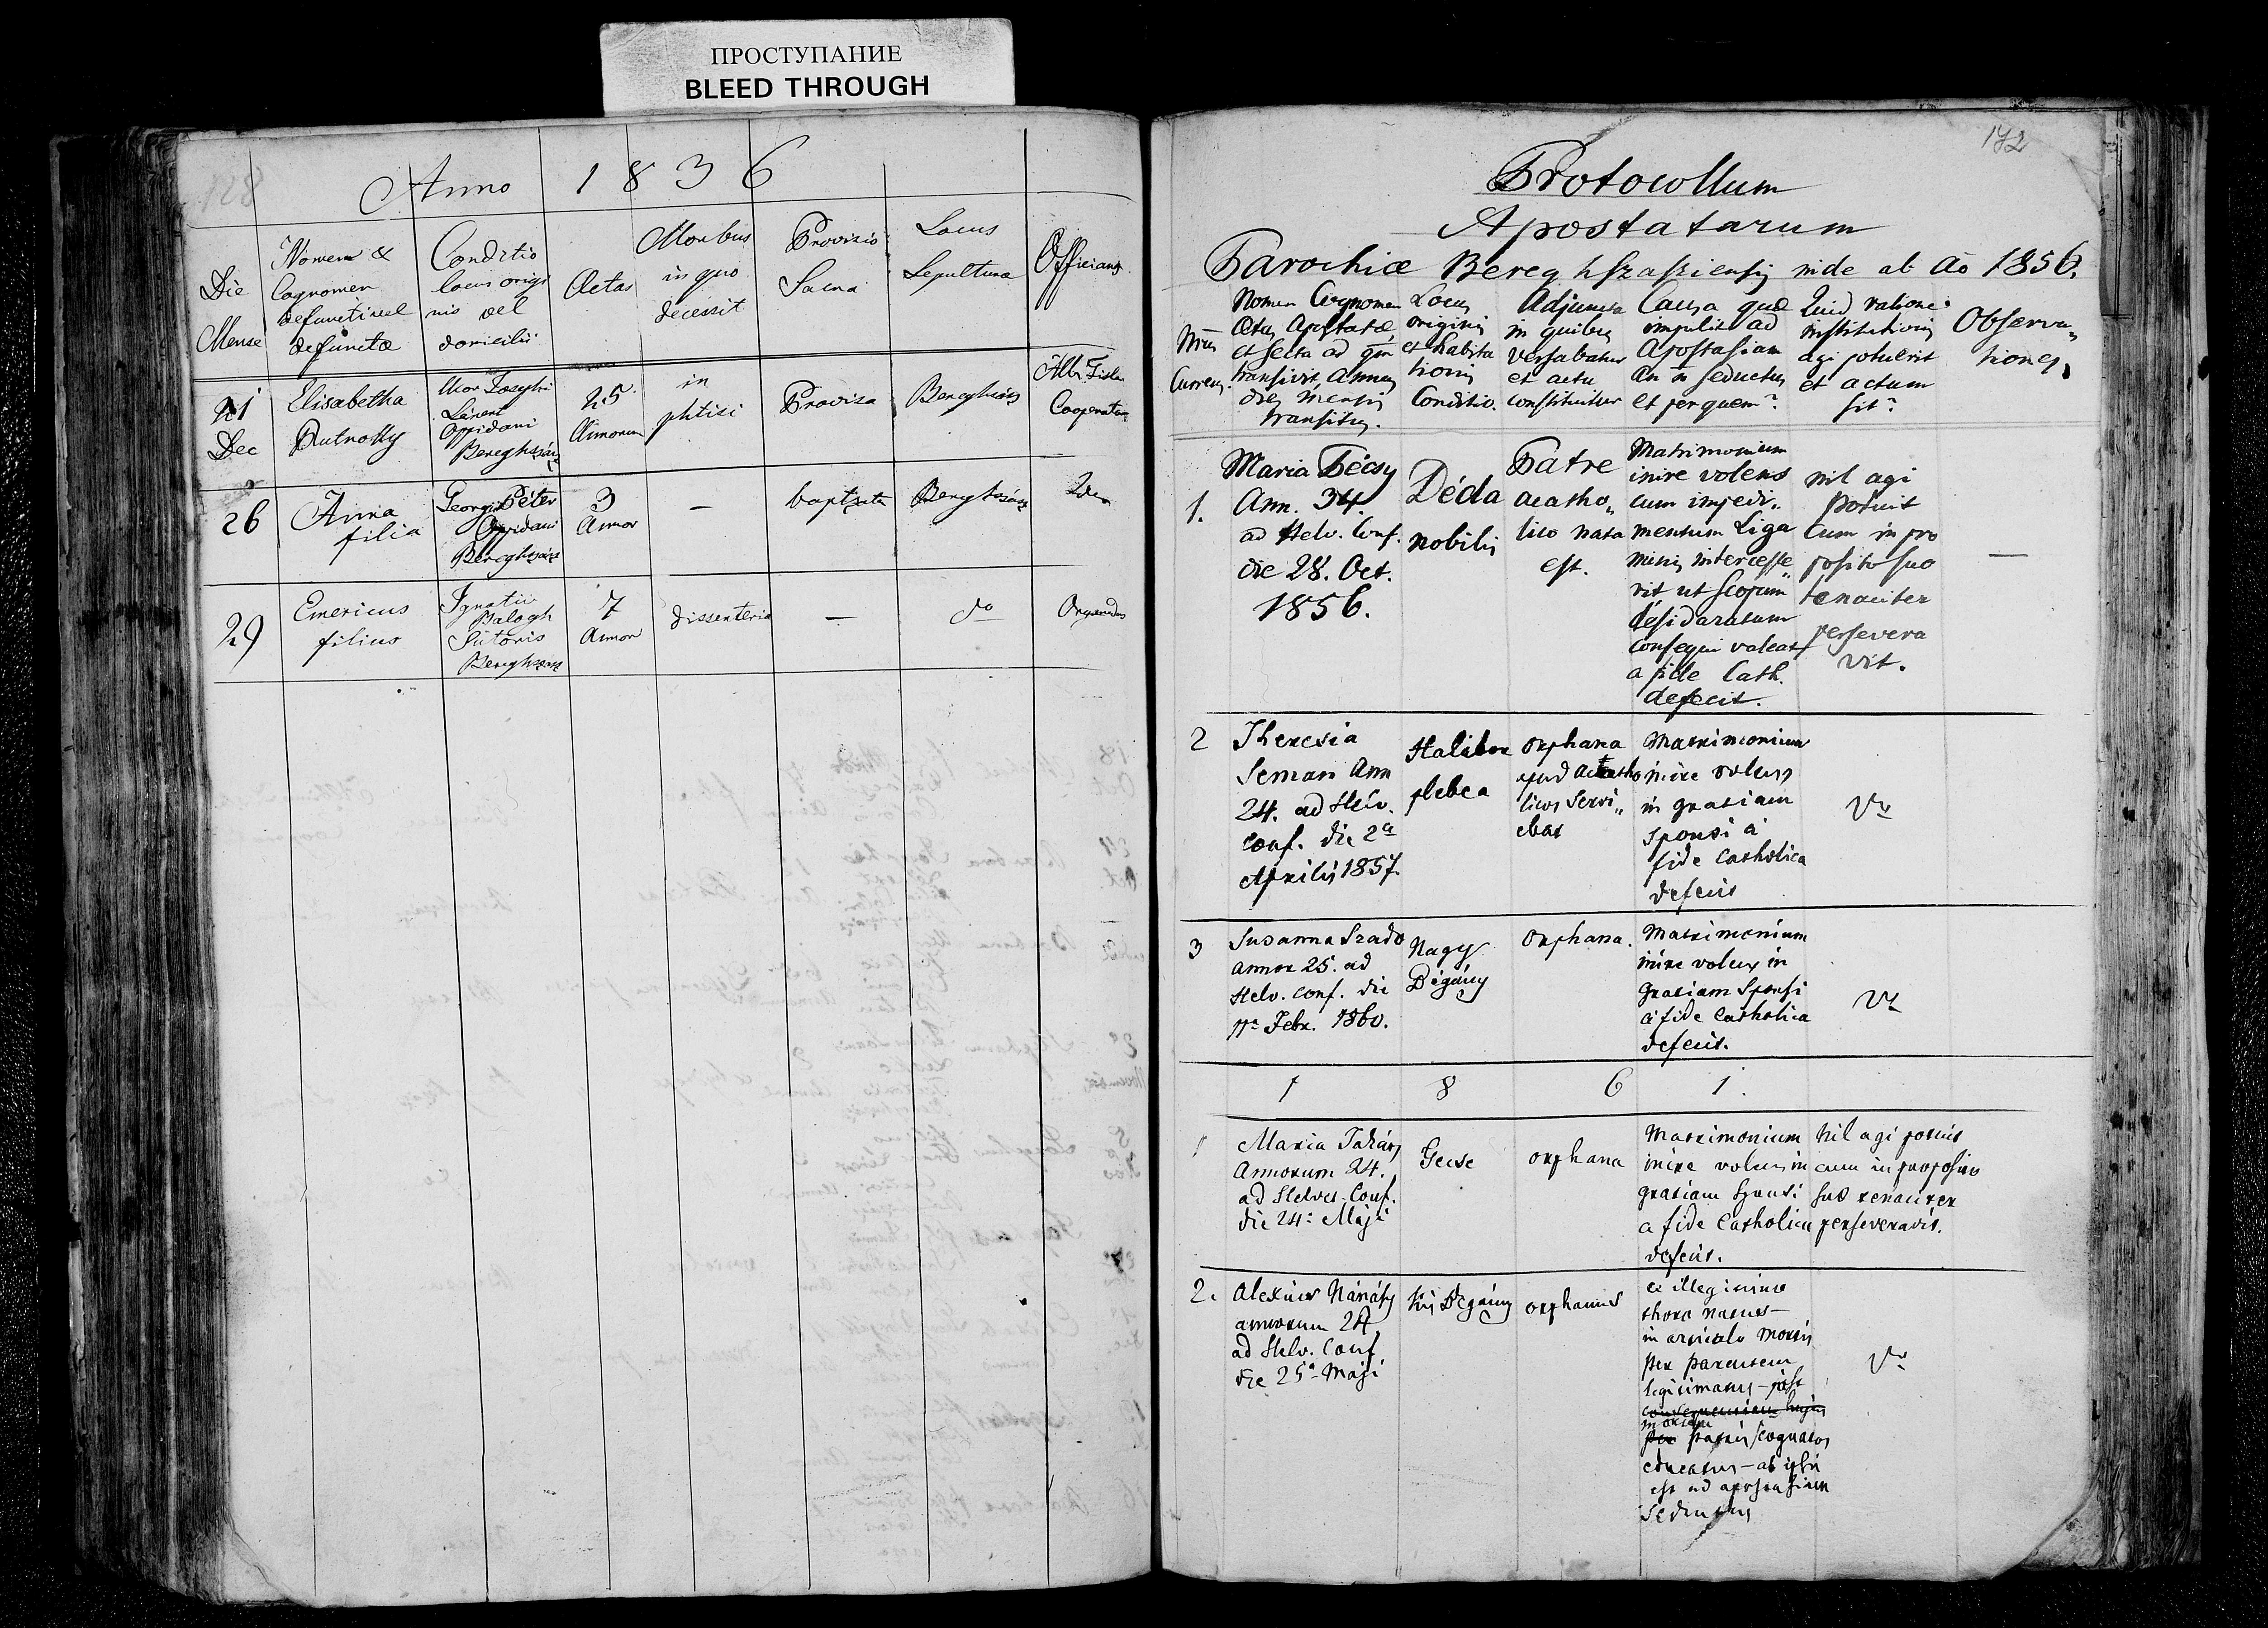 ПРОСТУПАНИЕ
BLEED THROUGH
128
Anno 1836
Die
Mense
Nomen &
Cognomen
defuncti vel
defunctæ
Conditio
locus origi
nis vel
domicilii
Aetas
Morbus
in quo
decessit
Provisio
Sacra
Locus
Sepulturæ
Officians
21
Dec
Elisabetha
Putnoky
Uxor Josephi
Oppidani
Bereghszász
25
Annorum
in
phtisi
Provisa
Bereghszász
Cooperator
26
Anna
filia
Georgii Péter
Oppidani
Bereghszász
3
Annor
—
baptisata
Bereghszász
Idem
29
Emericus
filius
Ignatii
Balogh
Sutoris
Bereghszász
7
Annor
dissenteria
—
do
172
Protocollum
Apostatarum
Parochiæ Bereghszasziensis inde ab Ao 1856.
Nrus
Currens.
Nomen Cognomen
Ætas Apostatæ
et secta ad qm
transivit, Annus
dies mensis
transitus.
Locus
originis
et habita
tionis
Conditio.
Adjuncta
in quibus
versabatur
et actu
constituitur
Causa quæ
impulit ad
Apostasiam
an n̄ seductus
et per quem?
Quid ratione
institutionis
agi potuerit
et actum
sit?
Observa„
tiones
1.
Maria Bécsy
Ann. 34.
ad Helv. Conf.
die 28. Oct.
1856.
Déda
nobilis
Patre
acatho„
lico nata
est.
Matrimonium
inire volens
cum impedi„
mentum Liga
minis intercesse„
rit ut scopum
desidaratum
consequi valeat
a fide Cath.
defecit.
nil agi
potuit
cum in pro
posito suo
tenaciter
persevera
vit.
—
2
Theresia
Seman Ann
24. ad Helv.
Conf. die 2a
Aprilis 1857.
plebea
orphana
apud acatho
licos servi„
ebat
Matrimonium
inire volens
in gratiam
sponsi à
fide Catholica
defecit
3
Susanna Szabo
annor 25. ad
Helv. conf. die
11a Febr. 1860.
Nagy
Bégány
Orphana.
Matrimonium
inire volens in
gratiam Sponsi
à fide Catholica
defecit.
1 8 6 1.
1
Maria Takács
Annorum 24.
ad Helvet. Conf.
die 24a Maji
Gecse
orphana
Matrimonium
inire volens in
gratiam Sponsi
a fide Catholica
defecit.
Nil agi potuit
cum in proposito
suo tenaciter
perseveravit.
2.
Alexius Nánásy
annorum 24
ad Helv. Conf
die 25a Maji
Kis Bégány
orphanus
ex illegitimo
thoro natus—
in articulo mortis
per parentem
legitimatus — post
mortem
patris cognatos
educatus — ab ipsis
est ad apostasiam
seductus